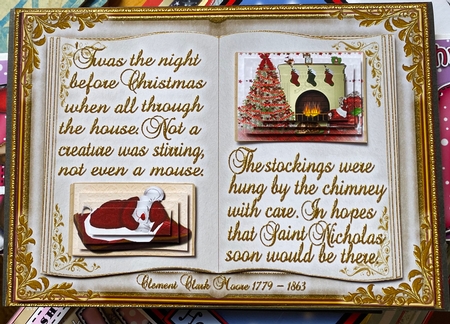 'Twas the night
before Christmas
when all through
the house. Not a
creature was stirring,
not even a mouse.
The stockings were
hung by the chimney
with care. In hopes
that Saint Nicholas
soon would be there.
Clement Clark Moore 1779 - 1863